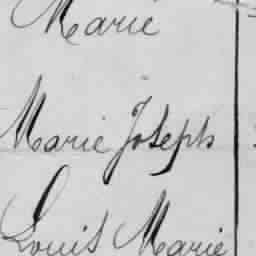 Marie
Marie Joseph
Louis Marie